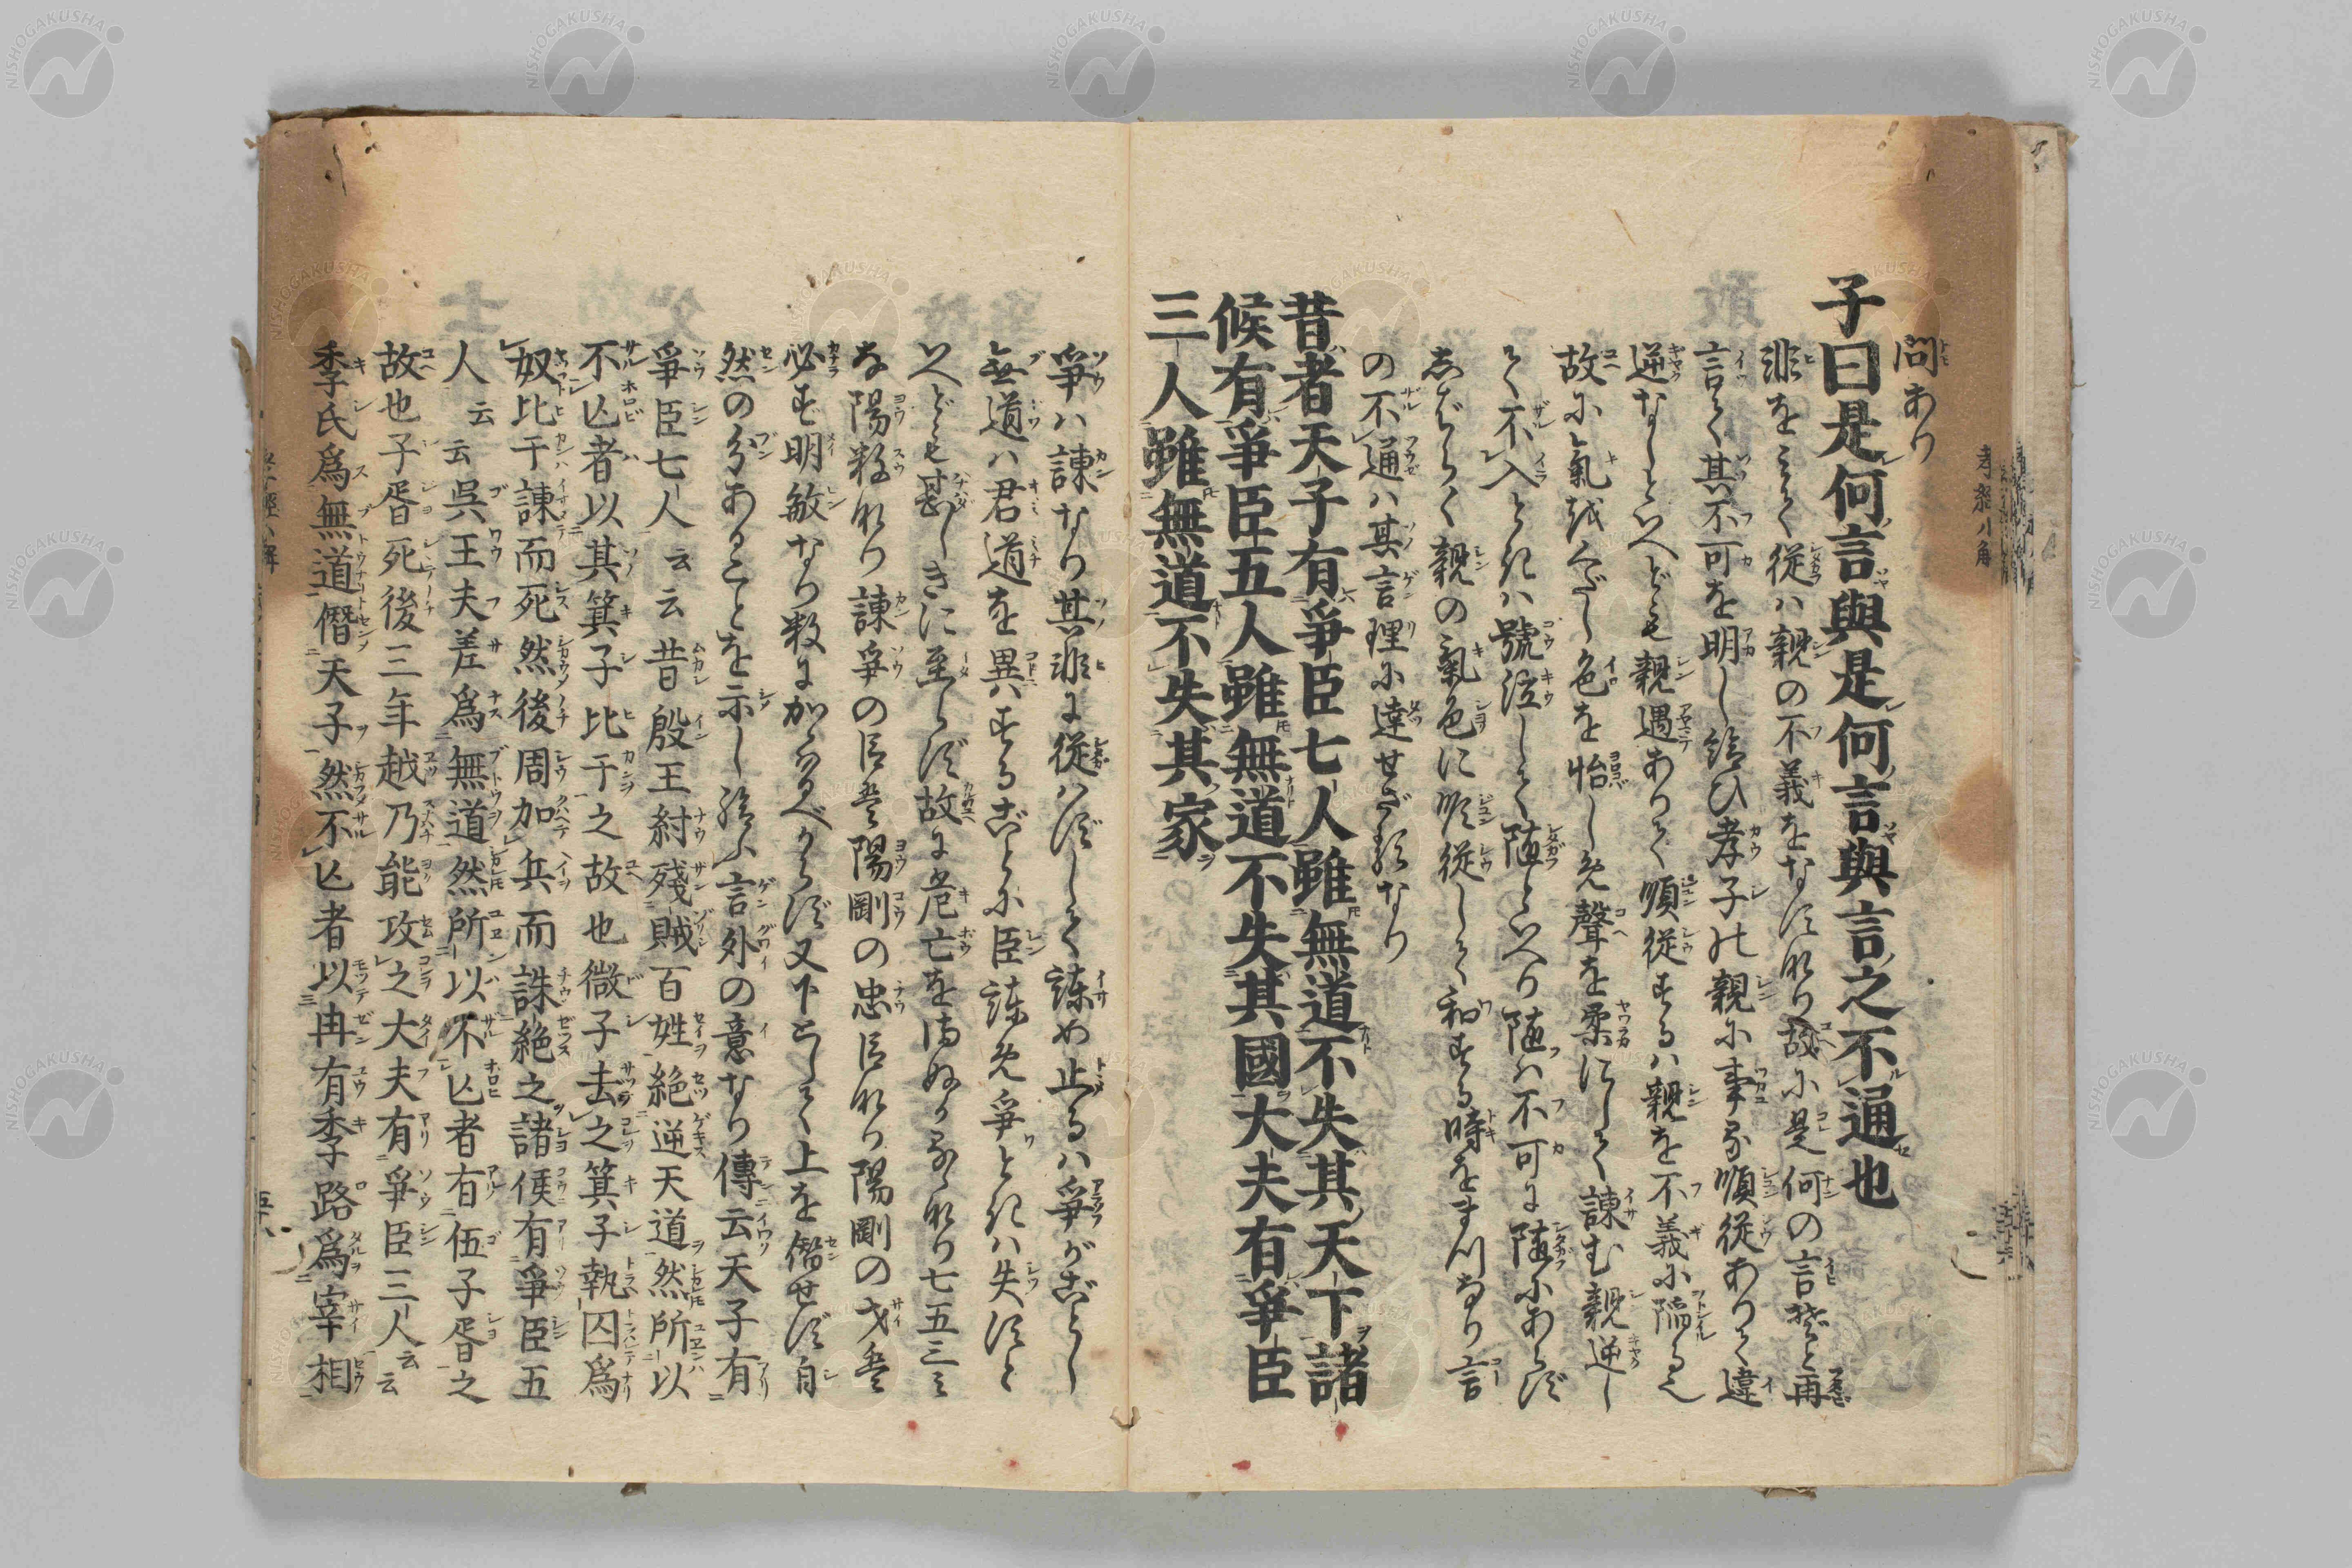 問あり
子曰是何言與是何言與言之不通也
非をみて従ハ親の不義をなすなり故に是何の言ぞと再
言て其不可を明し給ひ孝子の親に事る順従ありて違
逆なしといへども親過ありて順従するハ親を不義に陥る
故に氣を下し色を怡しめ聲を柔にして諌む親逆し
て不入ときハ號泣して随といへり随ハ不可に随にあらず
しばらく親の氣色に順従して和する時をまつなり言
の不通ハ其言理に達せざるなり
昔者天子有爭臣七人雖無道不失其天下諸
候有爭臣五人雖無道不失其國大夫有爭臣
三人雖無道不失其家
爭ハ諌なり其非に従ハずして諌め止るハ爭がごとし
無道ハ君道を異するごとに臣諌め爭ときハ失すと
いへども甚しきに至らず故に危亡を
な陽数なり諌爭の臣 陽剛の忠臣なり陽剛の才
必ず明敏なり数にかゝるべからず又下として上を僭せず自
然の分あることを示し給ふ言外の意なり傳云天子有
爭臣七人云云昔殷王紂殘賊百姓絶逆天道然所以
不亾者以其箕子比干之故也微子去之箕子執囚爲
奴比干諌而死然後周加兵而誅絶之諸侯有爭臣五
人云云呉王夫差爲無道然所以不亾者有伍子胥之
故也子胥死後三年越乃能攻之大夫有爭臣三人云云
季氏爲無道僭天子然不亾者以冉有季路爲宰相